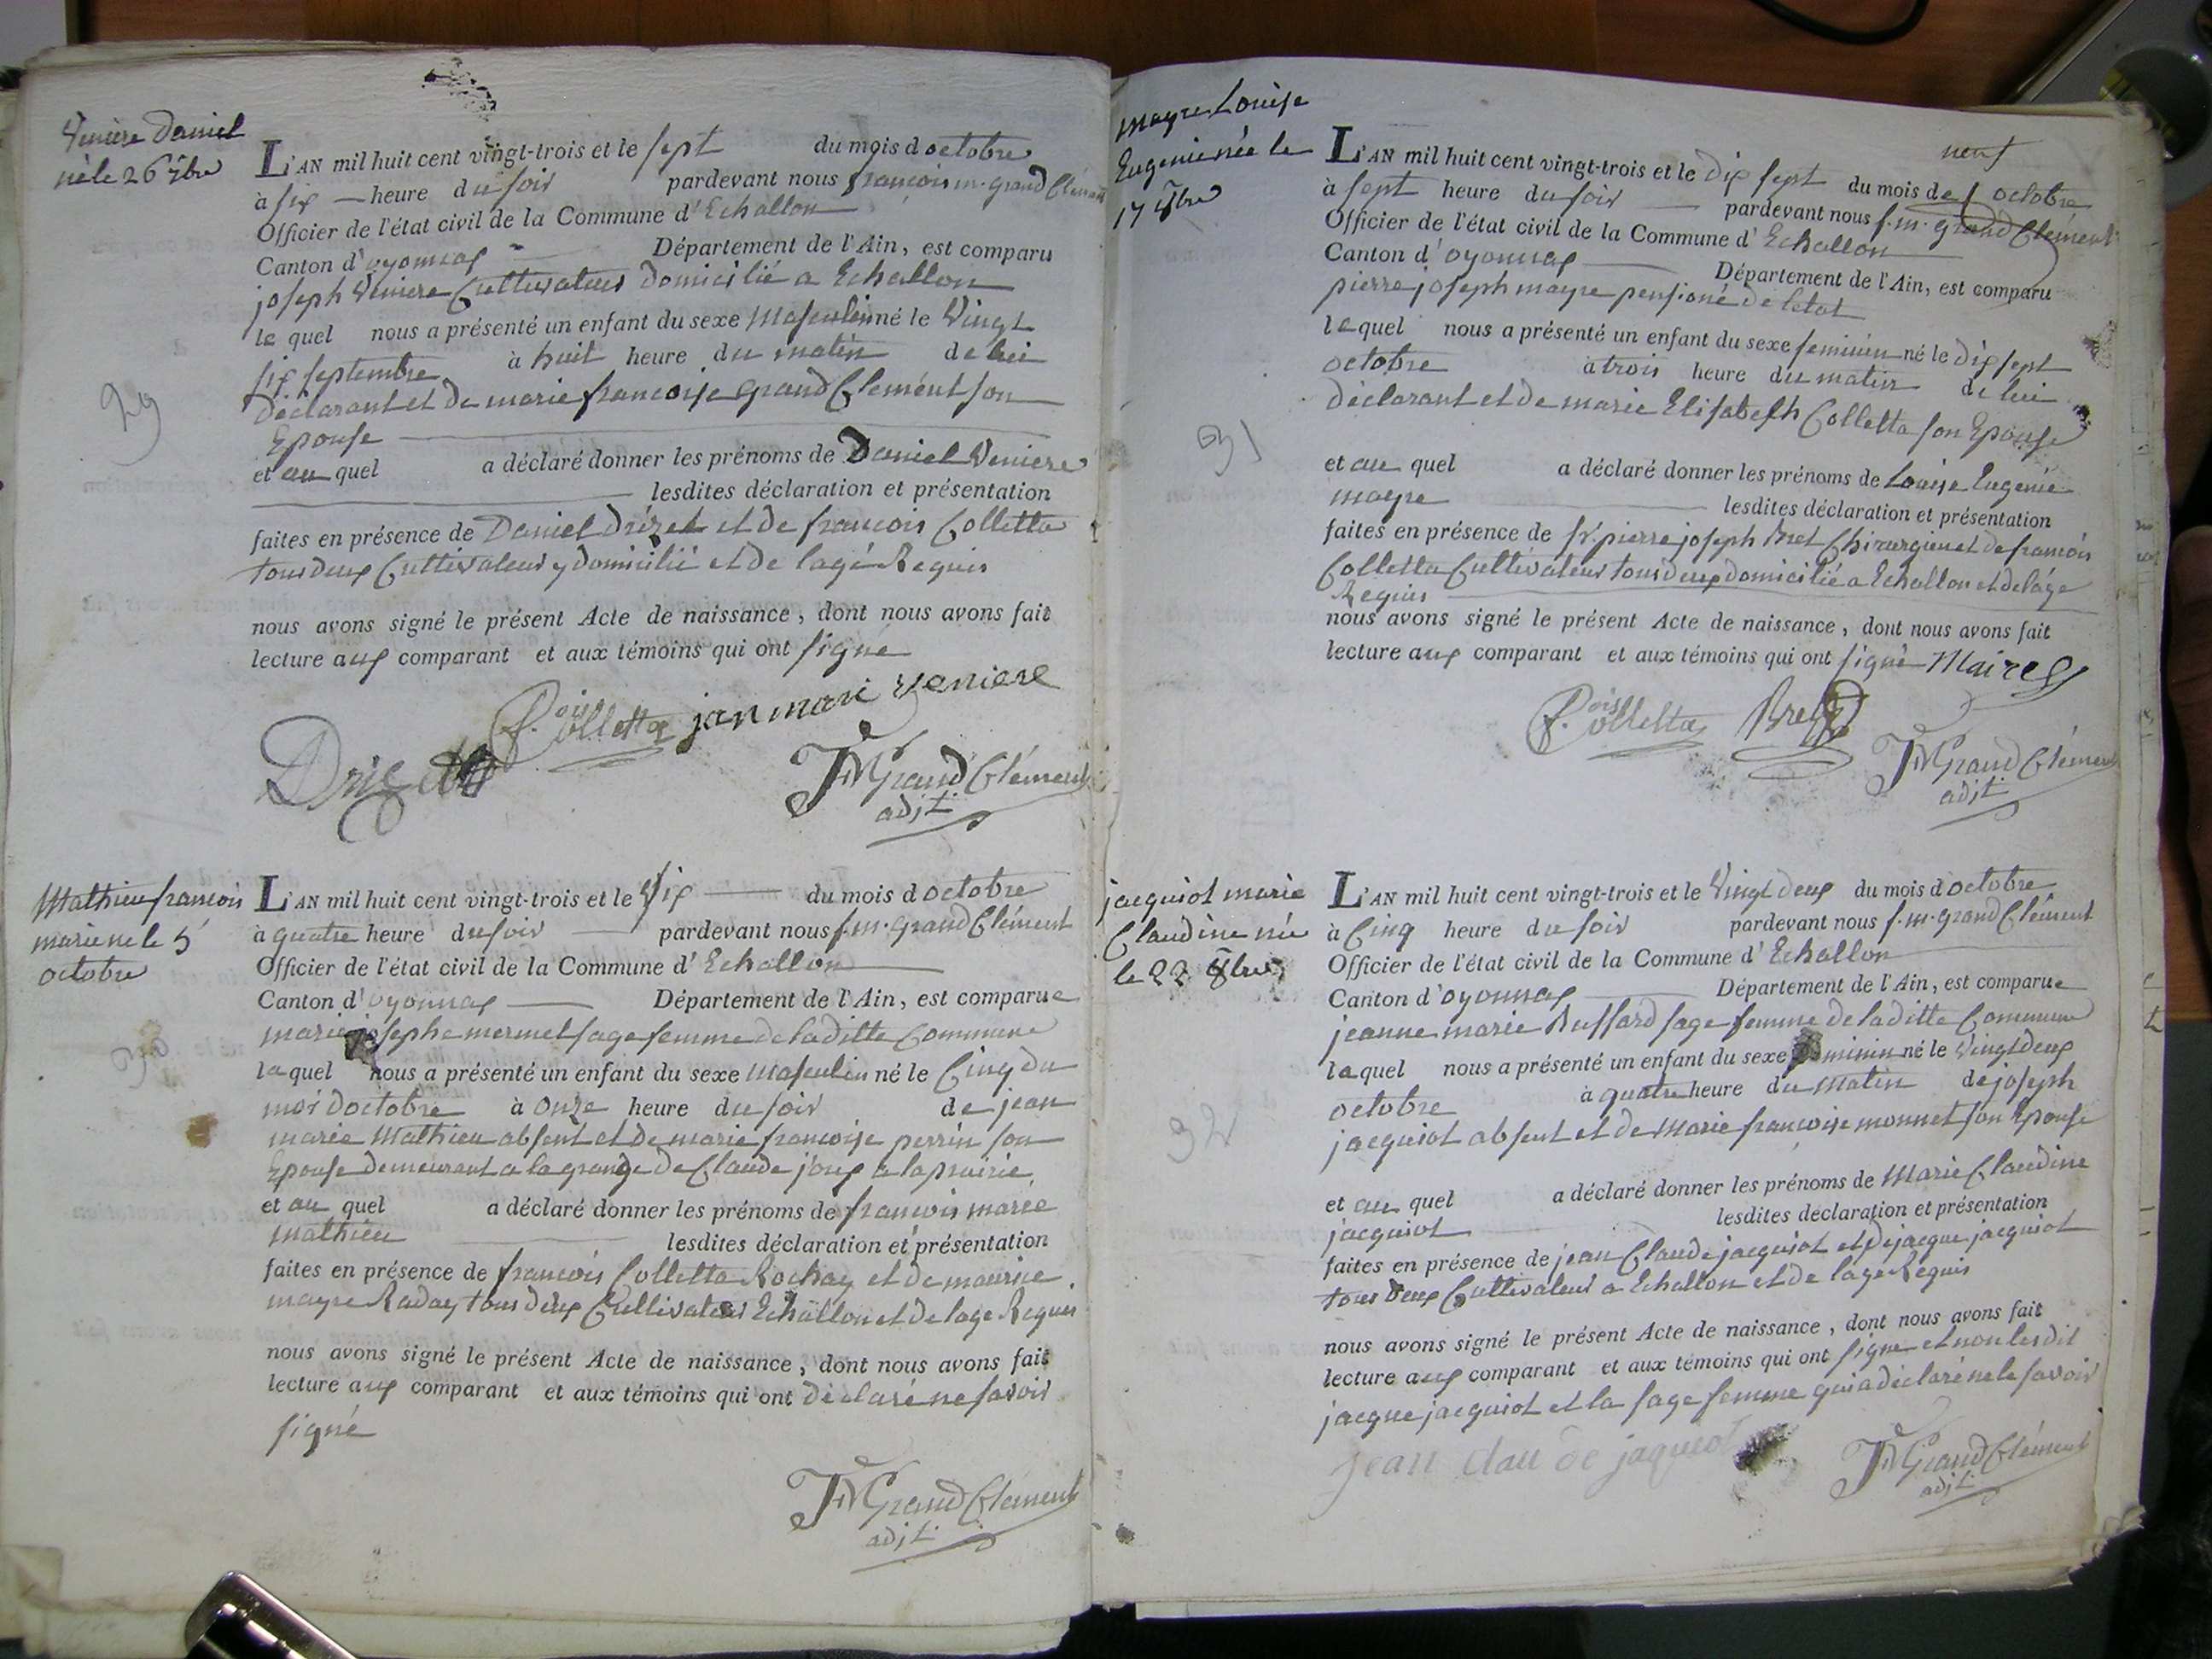 Veniere Daniel
né le 26 7bre
29
L'AN mil huit cent vingt-trois et le sept du mois d octobre
à six heure du soir pardevant nous francois m. grand Clément
Officier de l'état civil de la Commune d'Echallon
Canton d'oyonnax Département de l'Ain, est comparu
joseph Veniere Cultivateur domicilié a Echallon
le quel nous a présenté un enfant du sexe Masculin né le Vingt
six septembre à huit heure du matin de lui
déclarant et de marie francoise grand Clemént son
Epouse
et au quel a déclaré donner les prénoms de Daniel Veniere
lesdites déclaration et présentation
faites en présence de Daniel Drizet et de francois Colletta
tous deux Cultivateur y domicilié et de lagé Requis
nous avons signé le présent Acte de naissance, dont nous avons fait
lecture aux comparant et aux témoins qui ont signé
F.ois Colletta jan mari veniere
Drizet
FM Grand Clément
adjt
Mathieu francois
marie né le 5
octobre
30
L'AN mil huit cent vingt-trois et le Six du mois d octobre
à quatre heure du soir pardevant nous f. m. grand Clément
Officier de l'état civil de la Commune d'Echallon
Canton d'oyonnax Département de l'Ain, est comparue
marie josephe mermet sage femme de laditte Commune
la quel nous a présenté un enfant du sexe Masculin né le Cinq du
mois doctobre à onze heure du soir de jean
marie Mathieu absent et de marie francoise perrin son
Epouse demeurant a la grange de Claude joux a la prairie
et au quel a déclaré donner les prénoms de francois marie
mathieu lesdites déclaration et présentation
faites en présence de francois Colletta Rochay et de maurice
mayre Raday tous deux Cultivateur Echallon et de lage Requis
nous avons signé le présent Acte de naissance, dont nous avons fait
lecture aux comparant et aux témoins qui ont déclaré ne savoir
signé
FM Grand Clément
adjt
mayre Louise
Eugenie née le
17 8bre
31
L'AN mil huit cent vingt-trois et le dix sept neuf du mois de octobre
à sept heure du soir pardevant nous f. m. grand Clément
Officier de l'état civil de la Commune d'Echallon
Canton d'oyonnax Département de l'Ain, est comparu
pierre joseph mayre pensioné de létat
le quel nous a présenté un enfant du sexe feminin né le dix sept
octobre à trois heure du matin de lui
déclarant et de marie Elisabeth Colletta son Epouse
et au quel a déclaré donner les prénoms de Louise Eugénie
mayre lesdites déclaration et présentation
faites en présence de sr. pierre joseph Bret Chirurgien et de francois
Colletta Cultivateur tous deux domicilié a Echallon et de lage
Requis
nous avons signé le présent Acte de naissance, dont nous avons fait
lecture aux comparant et aux témoins qui ont signé Maire
F.ois Colletta Bret
FM Grand Clément
adjt
jacquiot marie
Claudine née
le 22 8bre
32
L'AN mil huit cent vingt-trois et le Vingt deux du mois d octobre
à Cinq heure du soir pardevant nous f. m. grand Clément
Officier de l'état civil de la Commune d'Echallon
Canton d'oyonnax Département de l'Ain, est comparue
jeanne marie Buffard sage femme de laditte Commune
la quel nous a présenté un enfant du sexe feminin né le Vingt deux
octobre à quatre heure du matin de joseph
jacquiot absent et de Marie francoise monnet son Epouse
et au quel a déclaré donner les prénoms de Marie Claudine
jacquiot lesdites déclaration et présentation
faites en présence de jean Claude jacquiot et de jacque jacquiot
tous deux Cultivateur a Echallon et de lage Requis
nous avons signé le présent Acte de naissance, dont nous avons fait
lecture aux comparant et aux témoins qui ont signe et non ledit
jacque jacquiot et la sage femme qui a déclaré ne le savoir
jean clau de jaqueot
FM Grand Clément
adjt